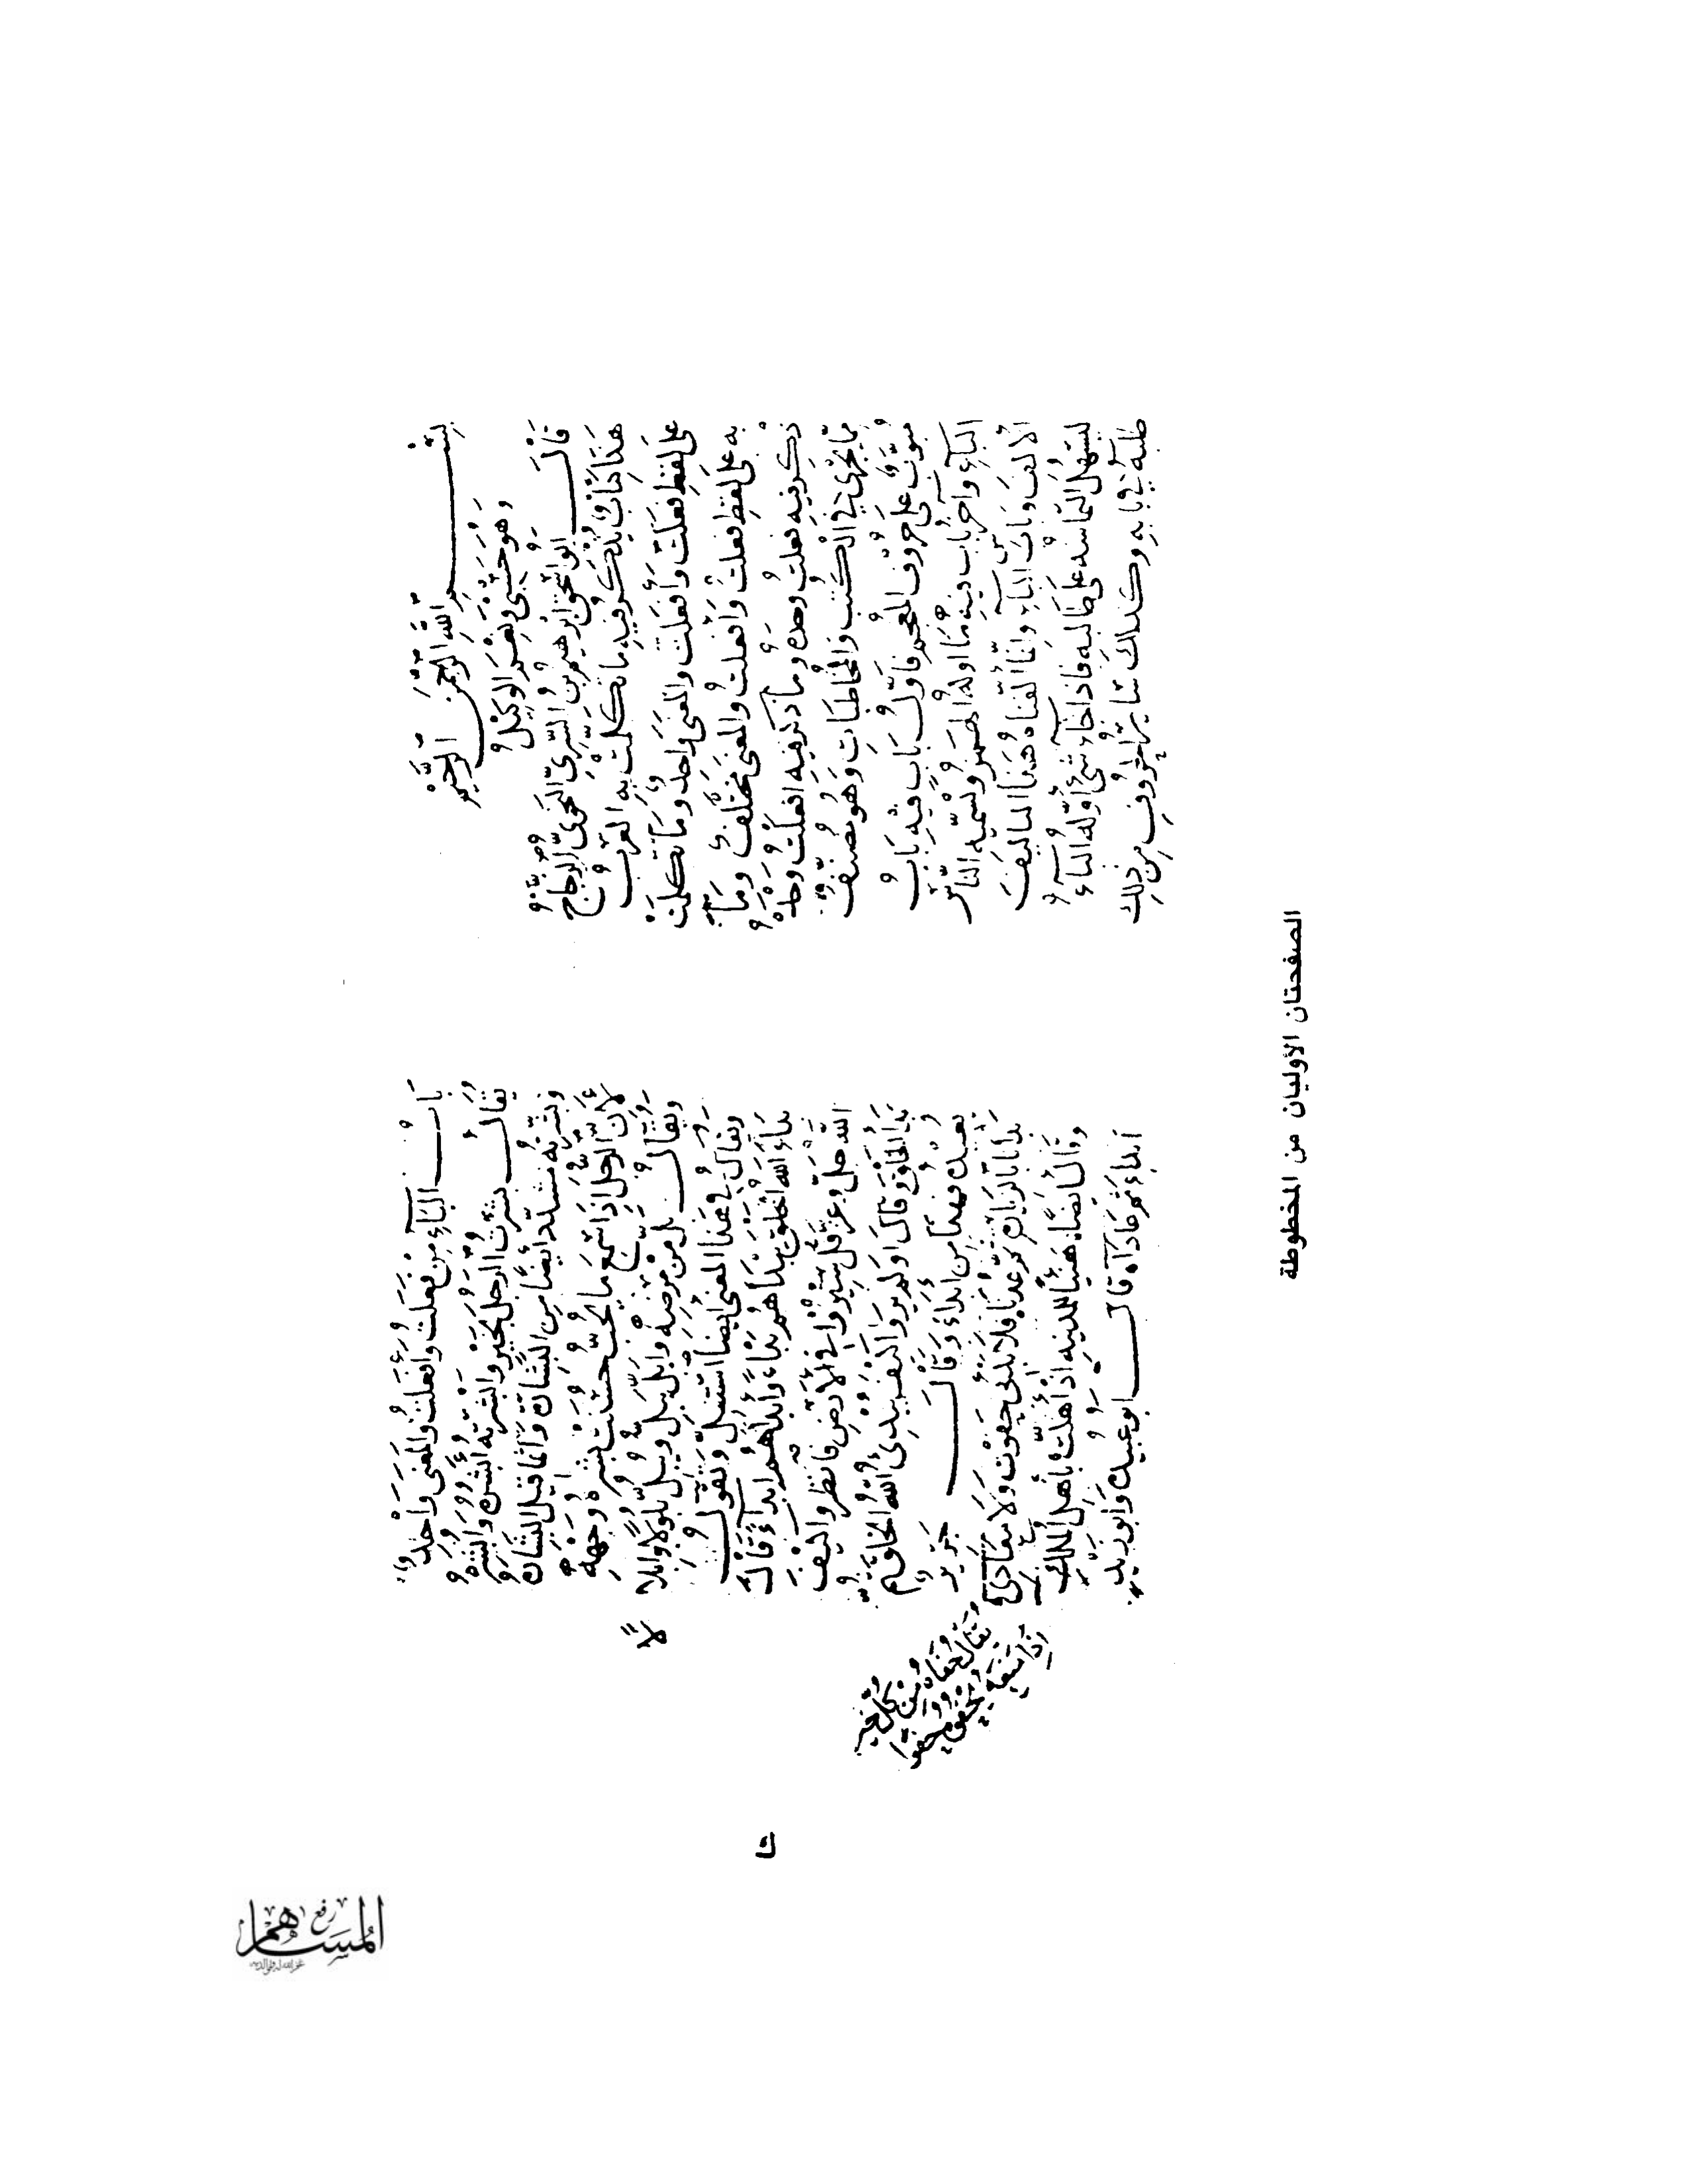 بسم الله الرحمن الرحيم
وهو حسبي ونعم الوكيل
قال أبو إسحق إبرهيم بن السري النحوي الزجاج
هذا كتاب نذكر فيه ما تكلمت به العرب
على لفظ فعلت وأفعلت والمعنى واحد وما تكلمت
به على لفظ فعلت وأفعلت والمعنى مختلف وما
ذكر فيه فعلت وحده وما ذكر فيه أفعلت وحده
مما يجري في الكتب والمخاطبات وهو مصنف
مبوب على حروف المعجم فأول باب فيه باب
الباء وآخر باب فيه ما أوله الهمز ويسميه الناس
الألف وباب الياء وإنما ألفناه هذا التأليف
ليسهل التماسه على طالبه فإذا جاء شيء أوله الباء
طلبه في بابه وكذلك سائر الحروف من ذلك
باب الباء من فعلت وأفعلت والمعنى واحد
يقال بشرت الرجل بخير وأبشرته أبشره وأبشره
وبشرته مشدد أيضا من البشارة وإنما قيل البشارة
لأن الرجل إذا سمع ما يحب حسنت بشرة وجهه
ويقال بل من مرضه وأبل يبل ويبل بلولا وإبلالا
ويقال في هذا المعنى أيضا استبل ويقول
بدأ الله الخلق بدأهم بدءا وأبدأهم إبداء قال
الله جل وعز قل سيروا في الأرض فانظروا كيف
بدأ الخلق وقال أولم يروا كيف يبدئ الله الخلق ثم
يعيده فهذا من أبدأ وقال جرير
وقال أيضا هنيئا للمدينة إذ أهلت بأهل الملك
أبدأ ثم عادا قال أبو عبيدة وأبو زيد
الصفحتان الأوليان من المخطوطة
ث
رفع
المساهم
غفر الله له ولوالديه